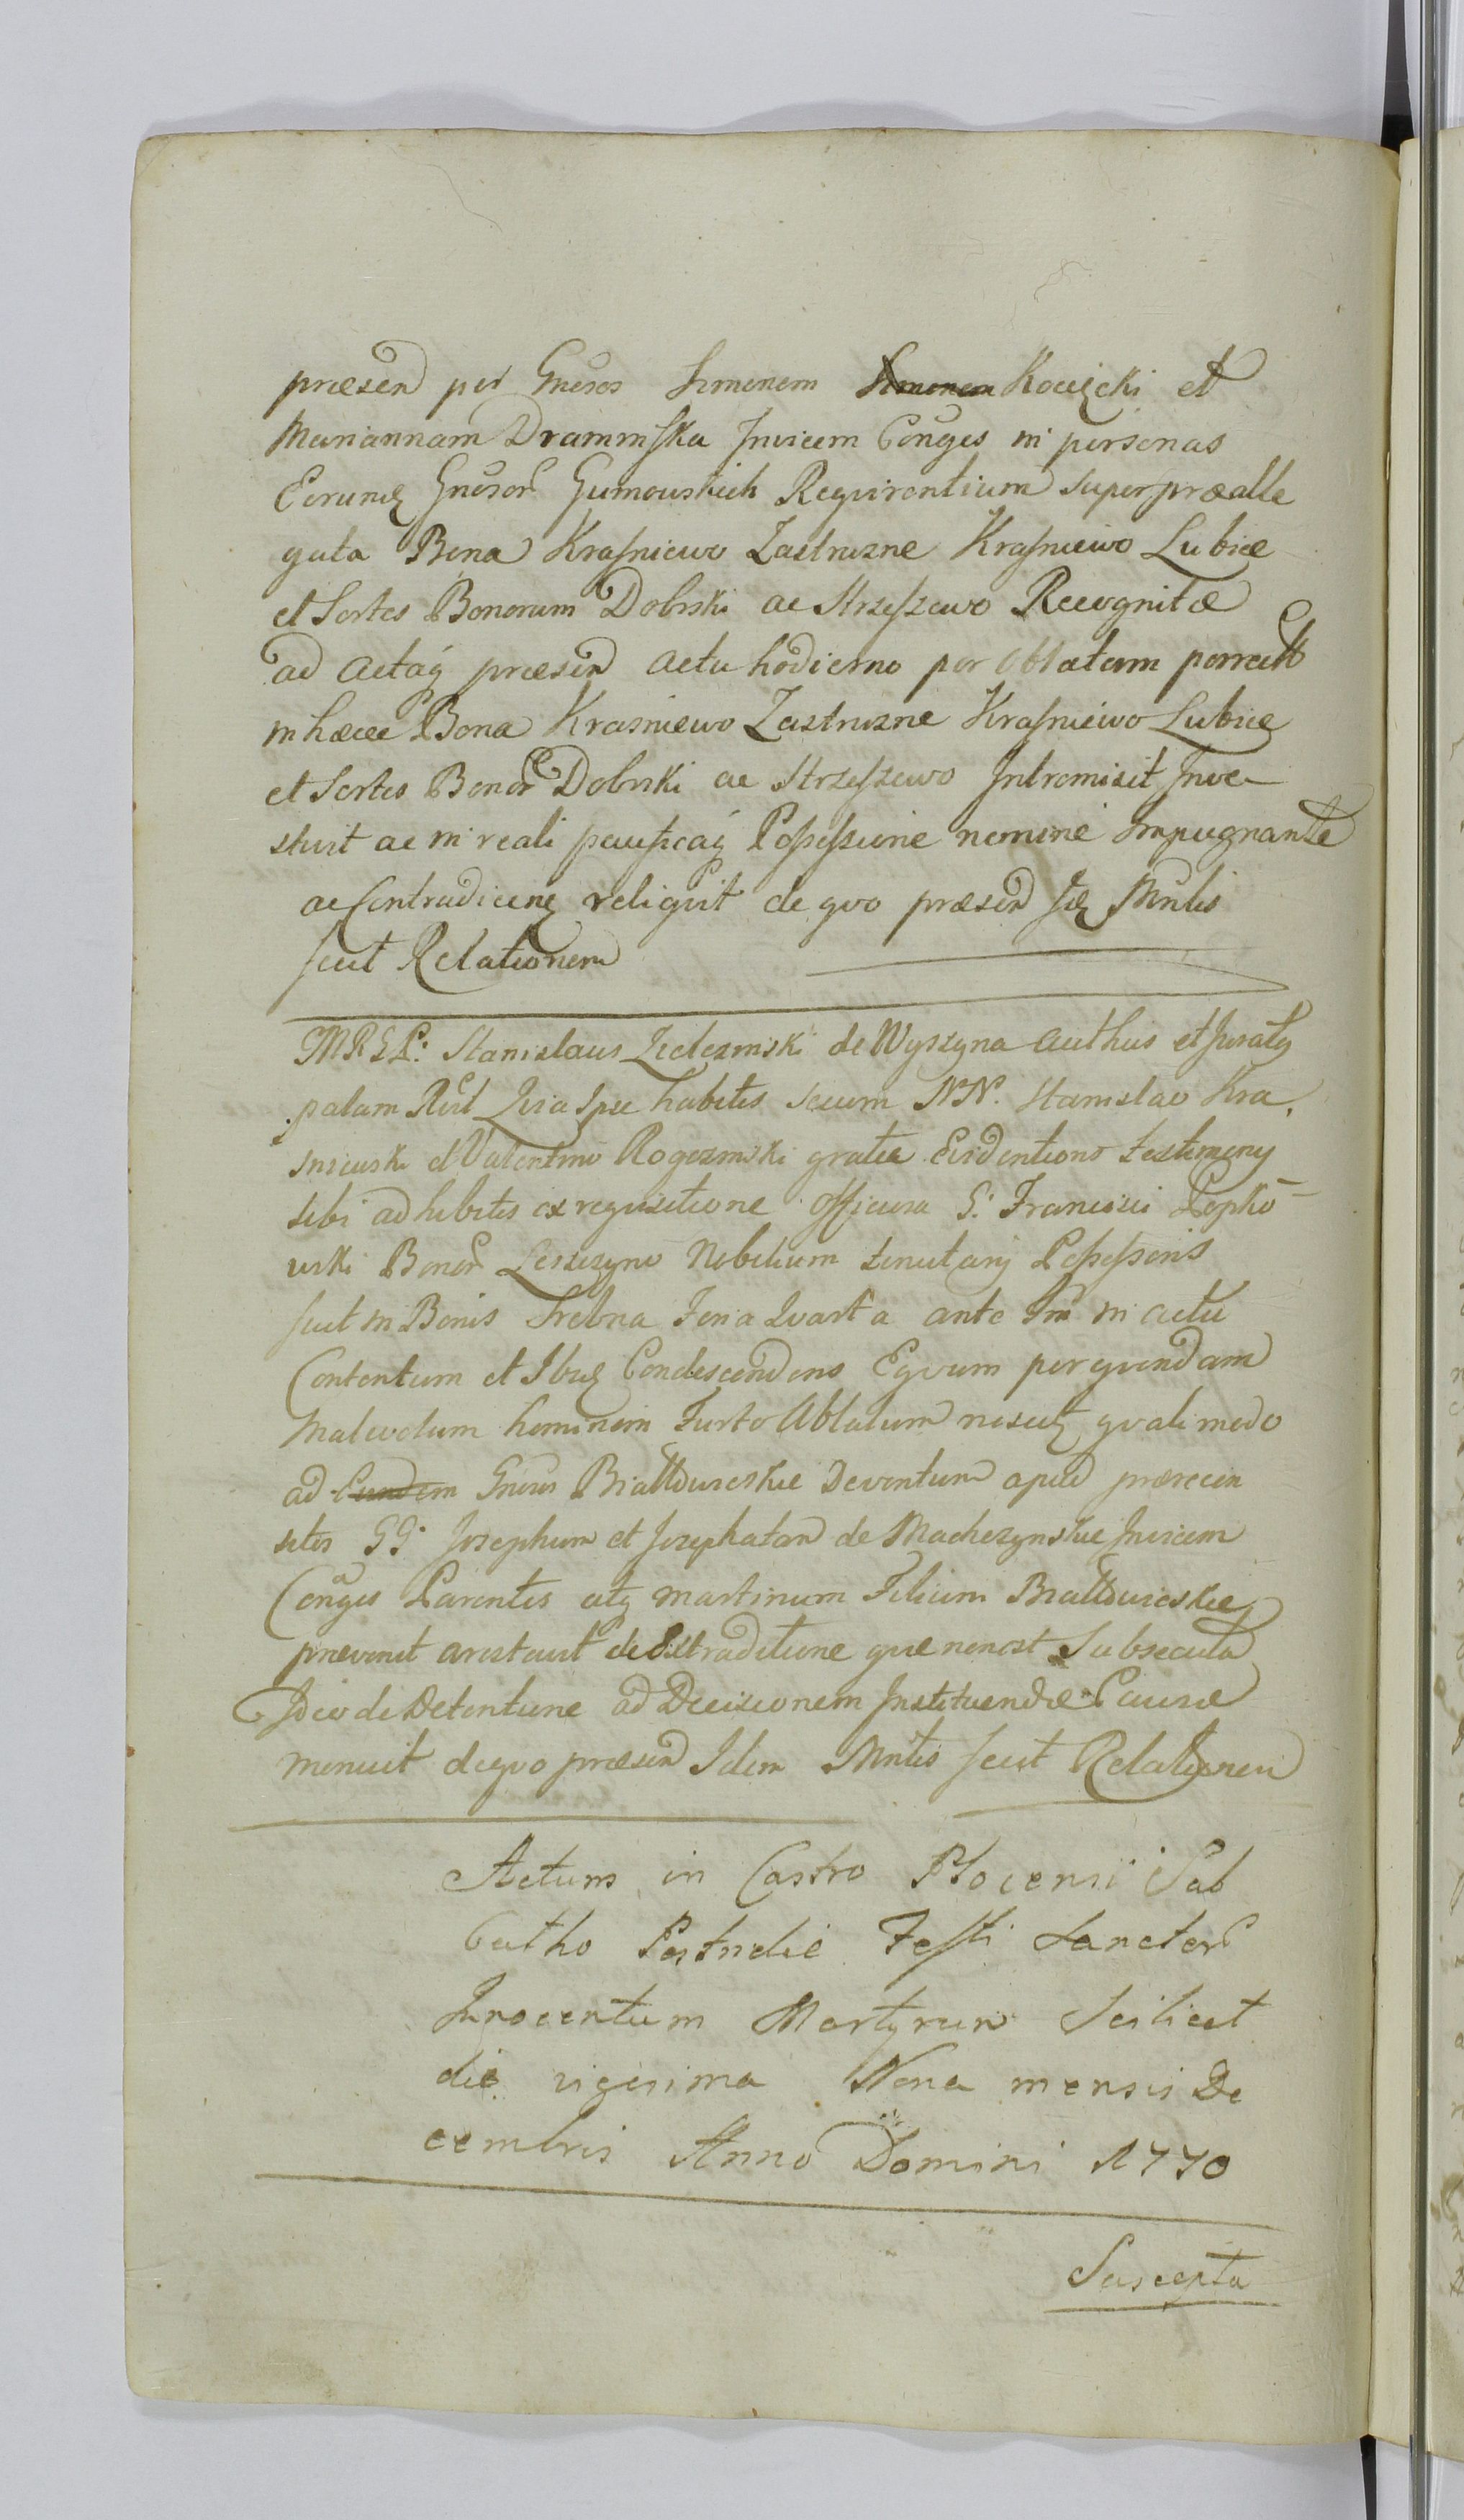 præsen per Gnesos Simonem Simonem Kocięcki et
Mariannam Draminska Invicem Conges in personas
Eorund Gnesor Gumowskich Reqvirentium super præalle
gata Bona Krasniewo Zastruzne Krasniewo Lubice
et Sortes Bonorum Dobrski ac Strzeszewo Recognitæ
ad Actaq præsen Actu hodierno per Oblatam porrect
in hæcce Bona Krasniewo Zastruzne Krasniewo Lubice
et Sortes Bonor Dobrski ac Strzeszewo Intromisit Inve
stivit ac in reali pacificaq Possessione nemine impugnante
ac Contradicen reliqvit de qvo præsen Id Mnlis
fecit Relationem
MREL: Stanislaus Zelezinski de Wyszyna Authus et Juratq
palam Rlit Qvia Ipse habitis secum NN. Stanislao Kra
sniewski et Valentino Rogozinski gratia Evidentions testimony
sibi adhibitis ex reqvisitione Officiosa G. Francisci Lepko
wski Bonor Leszczyno Nobilium tenutarij Possessoris
fuit in Bonis Srebna Feria Qvarta ante Fm in actu
Contentum et Ibid Condescendens Eqvum per qvendam
Malevolum hominem Furto Ablatum nescitq qvali modo
ad Eundem Gnesos Bialldureskie Deventum apud prærecen
sitos GG. Josephum et Jozephatan de Machczynskie Invicem
Conges Parentes atq Martinum Filium Bialldureskie
prævenit arestavit de Extraditione quæ non est Subsecuta
Ideo de Detentione ad Decisionem Instituendæ Causæ
monuit de qvo præsen Idem Mnlis fecit Relationem
Actum in Castro Plocensi Sab
batho Postridie Festi Sanctor
Innocentum Martyrum Scilicet
die vigesima Nona mensis De
cembris Anno Domini 1770
Suscepta